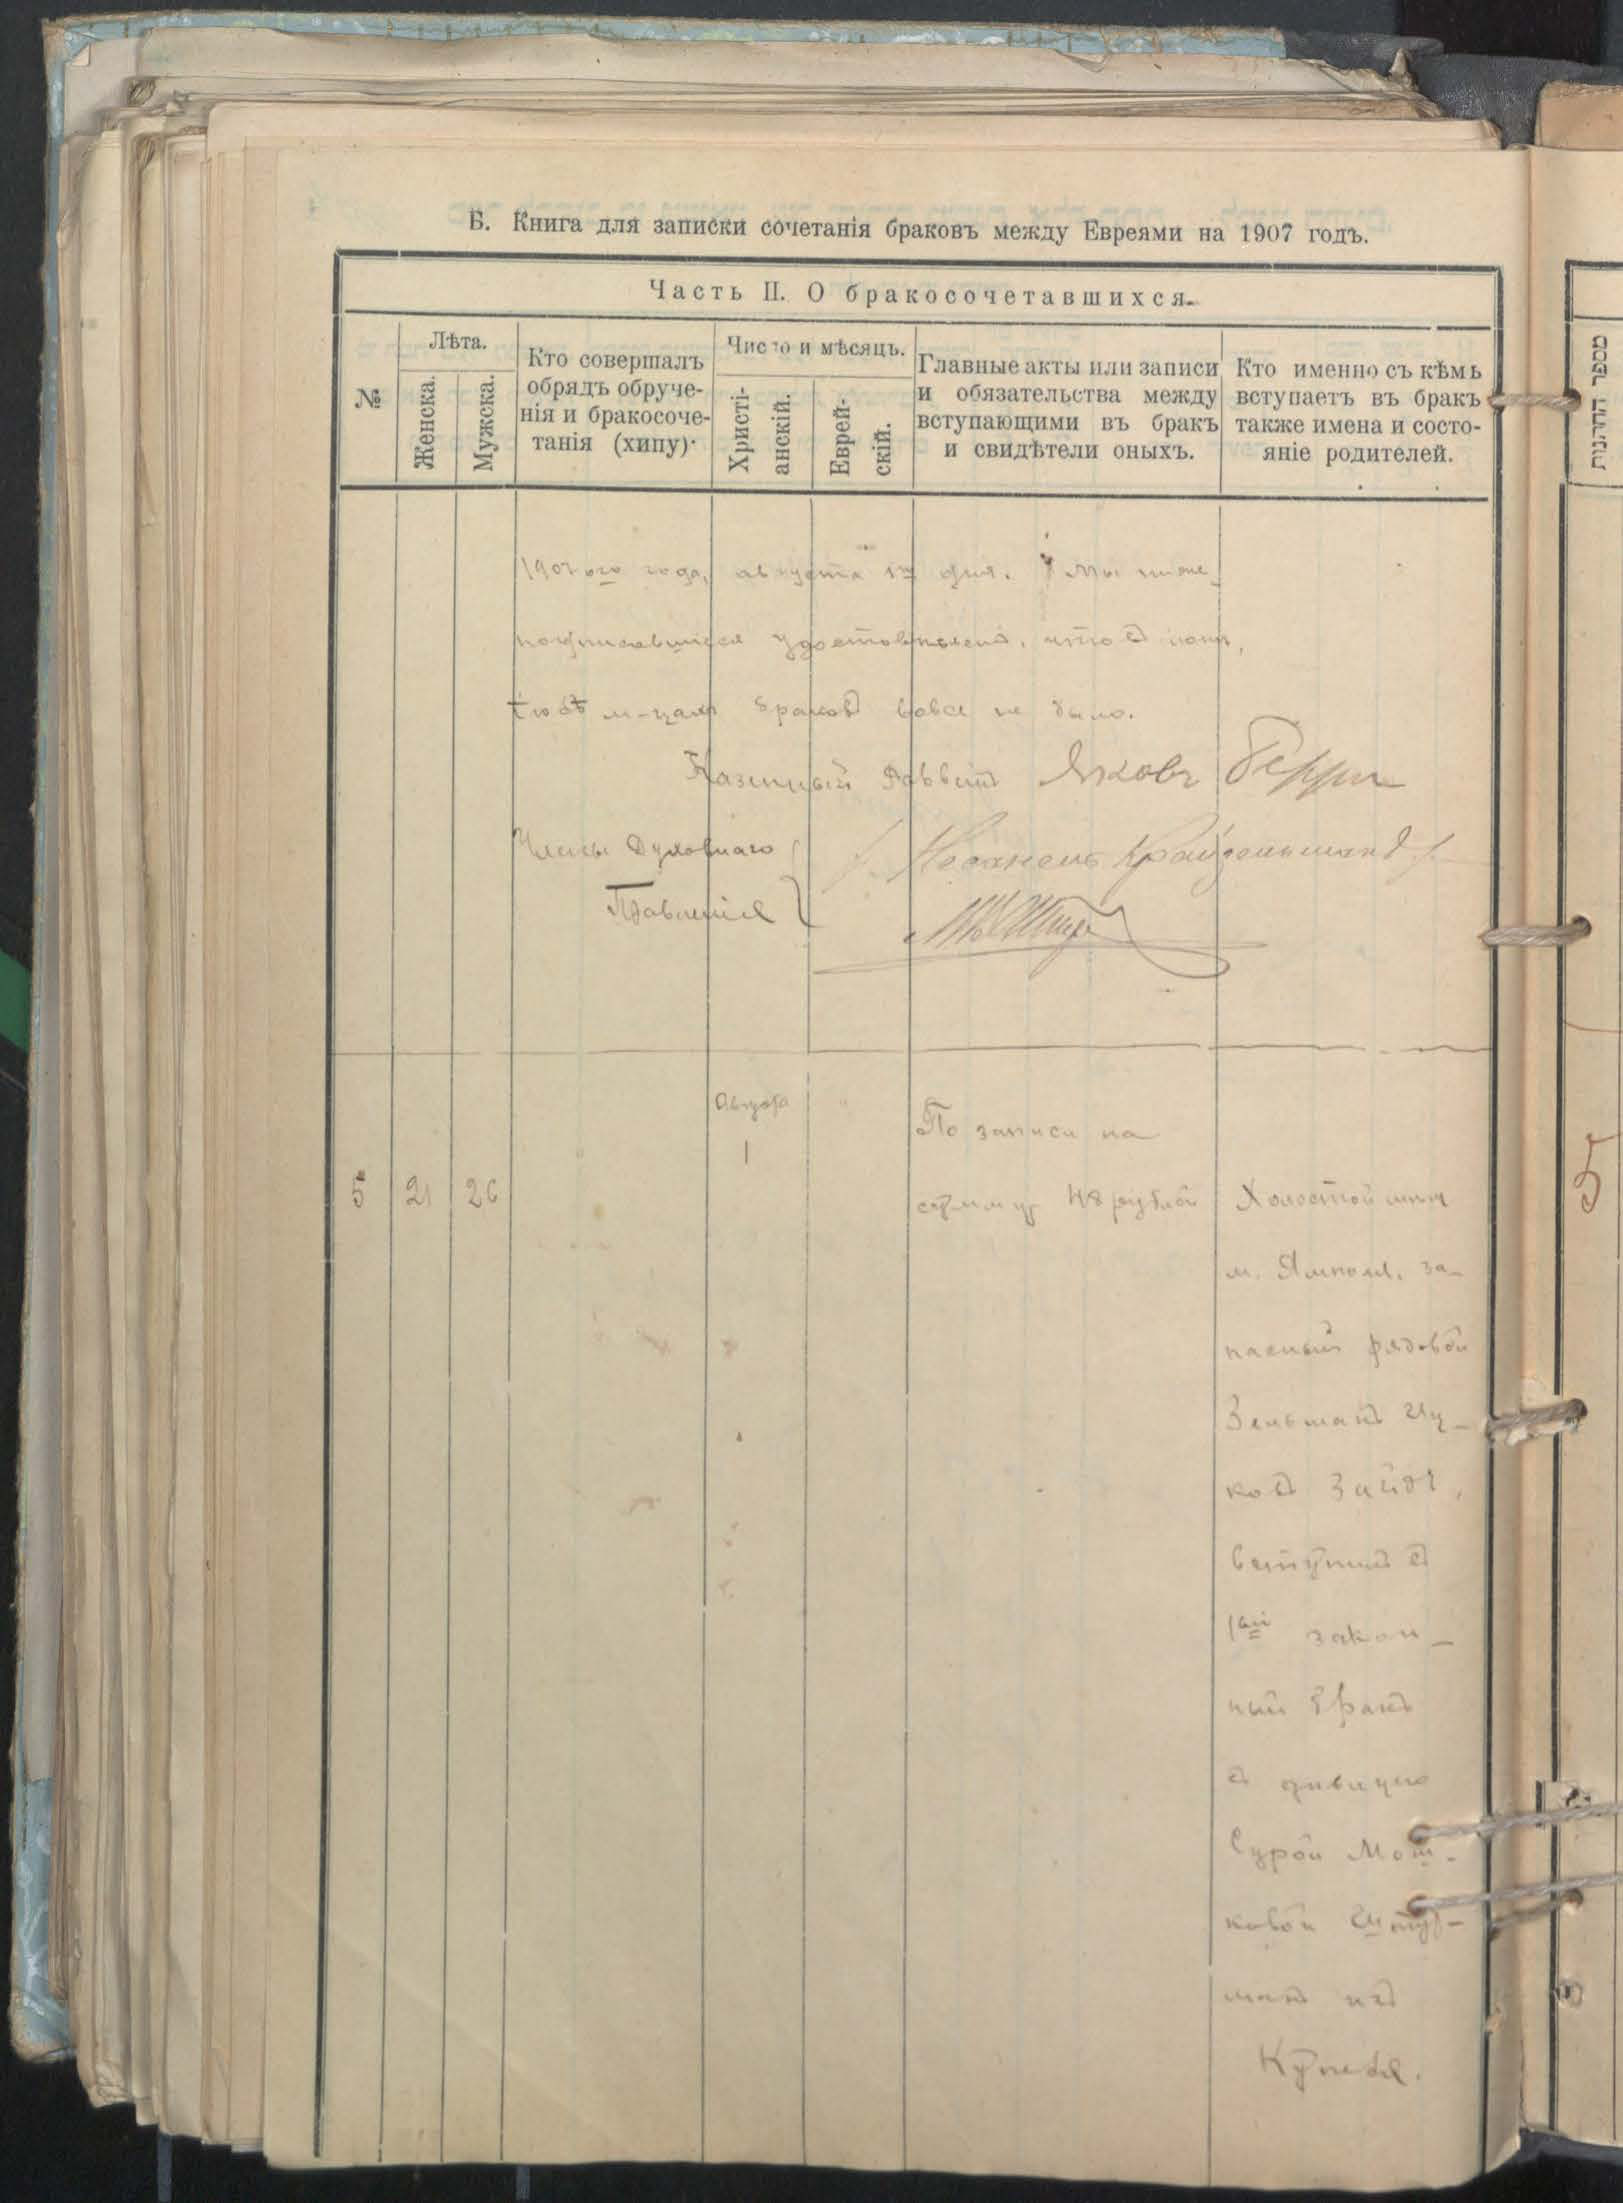 Б. Книга для записки сочетанія браковъ между Евреями на 1907 годъ.
Часть II. О бракосочетавшихся.
№
Лѣта.
Женска.
Мужска.
Кто совершалъ
обрядъ обруче-
нія и бракосоче-
танія (хипу).
Число и мѣсяцъ.
Христі-
анскій.
Еврей-
скій.
Главные акты или записи
и обязательства между
вступающими въ бракъ
и свидѣтели оныхъ.
Кто именно съ кѣмъ
вступаетъ въ бракъ
также имена и состо-
яніе родителей.
1907ого года, августа дня. Мы ниже-
подписавшіеся удостовѣряемъ, что въ іюнѣ,
іюлѣ м-цахъ браковъ вовсе не было.
Казенный Раввинъ Яковъ
Члены Духовнаго
Правленія
Августа
1
5 21 26
По записи на
сумму 48 рублей
Холостой мѣщ
м. Ямполя, за-
пасный рядовой
Зельманъ Иц-
ковъ Зайдъ,
вступилъ въ
1ый закон-
ный бракъ
съ дѣвицею
Сурой Мош-
ковой Штур-
манъ изъ
Купеля.
מספר החתנות
5